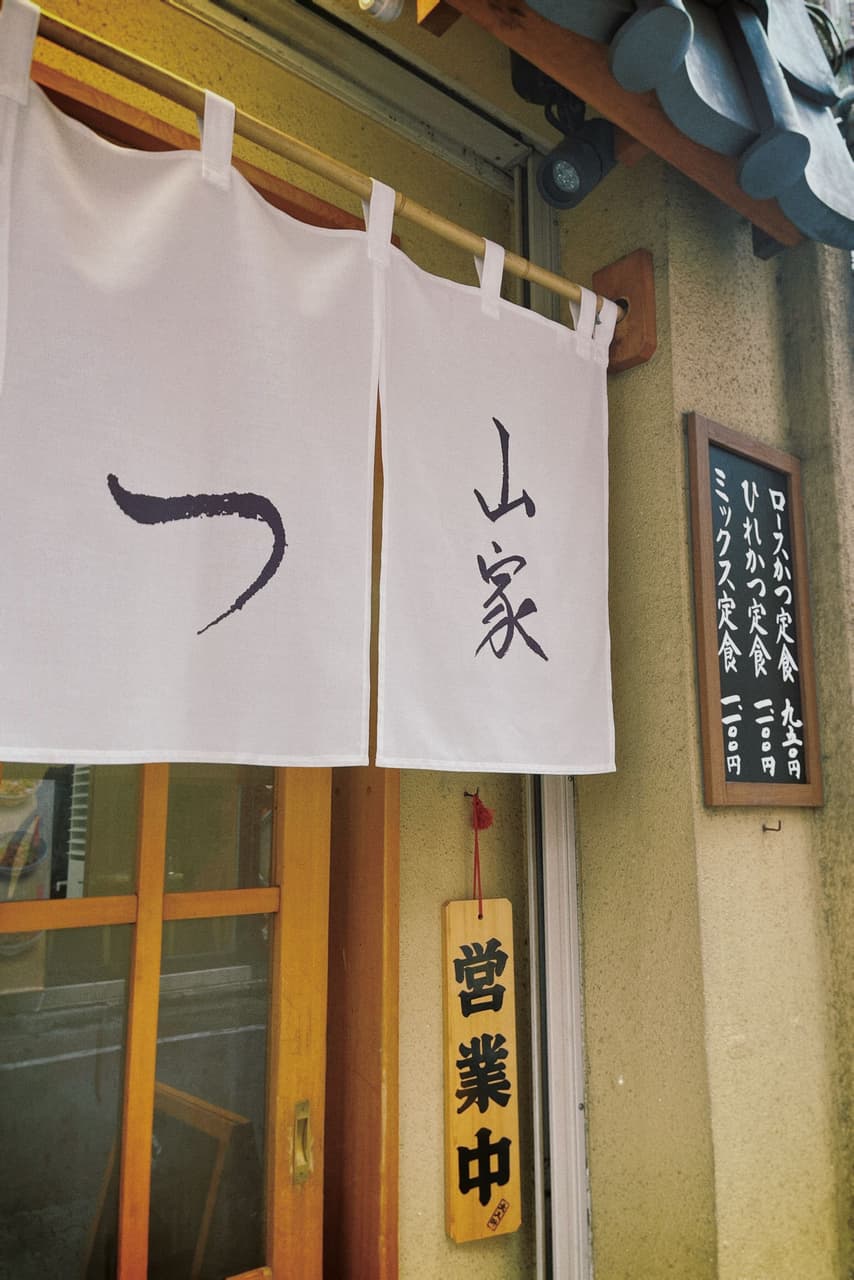 つ
山家
営業中
ロースかつ定食 九五〇円
ひれかつ定食 一、一〇〇円
ミックス定食 一、一〇〇円